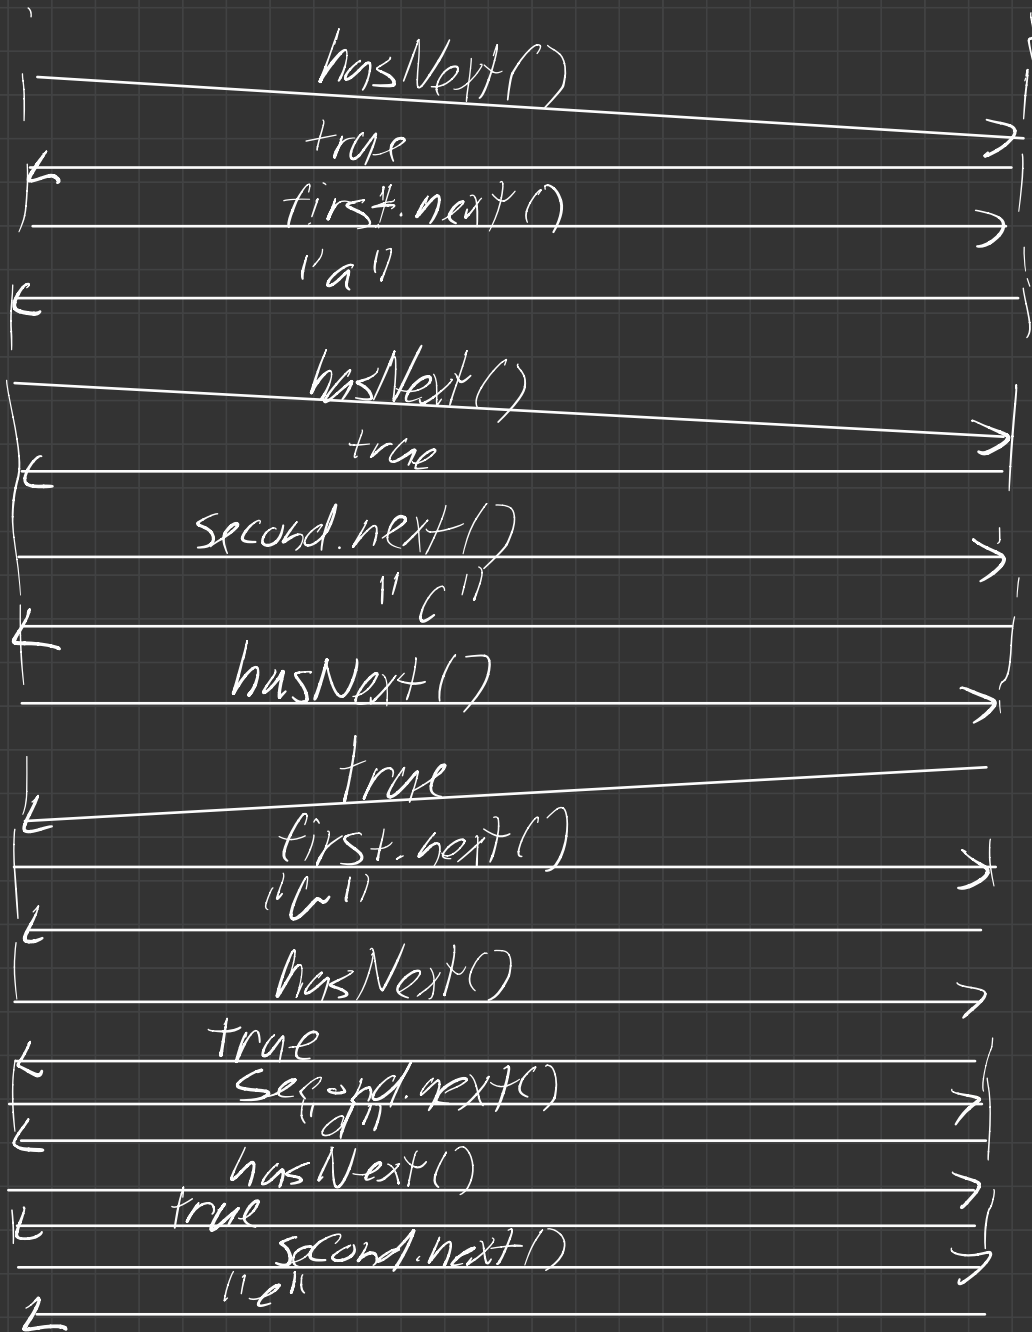 hasNext()
true
first.next()
"a"
hasNext()
true
second.next()
"c"
hasNext()
true
first.next()
hasNext()
true
second.next()
"d"
hasNext()
true
second.next()
"e"